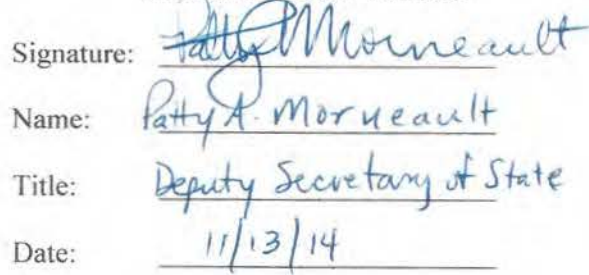 Signature: Patty Morneault
Name: Patty A. Morneault
Title: Deputy Secretary of State
Date: 11/13/14